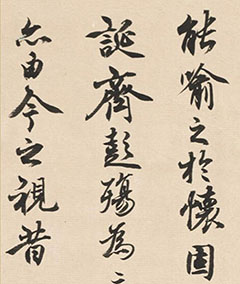 能喻之於懷固
誕齊彭殤為
亦由今之視昔